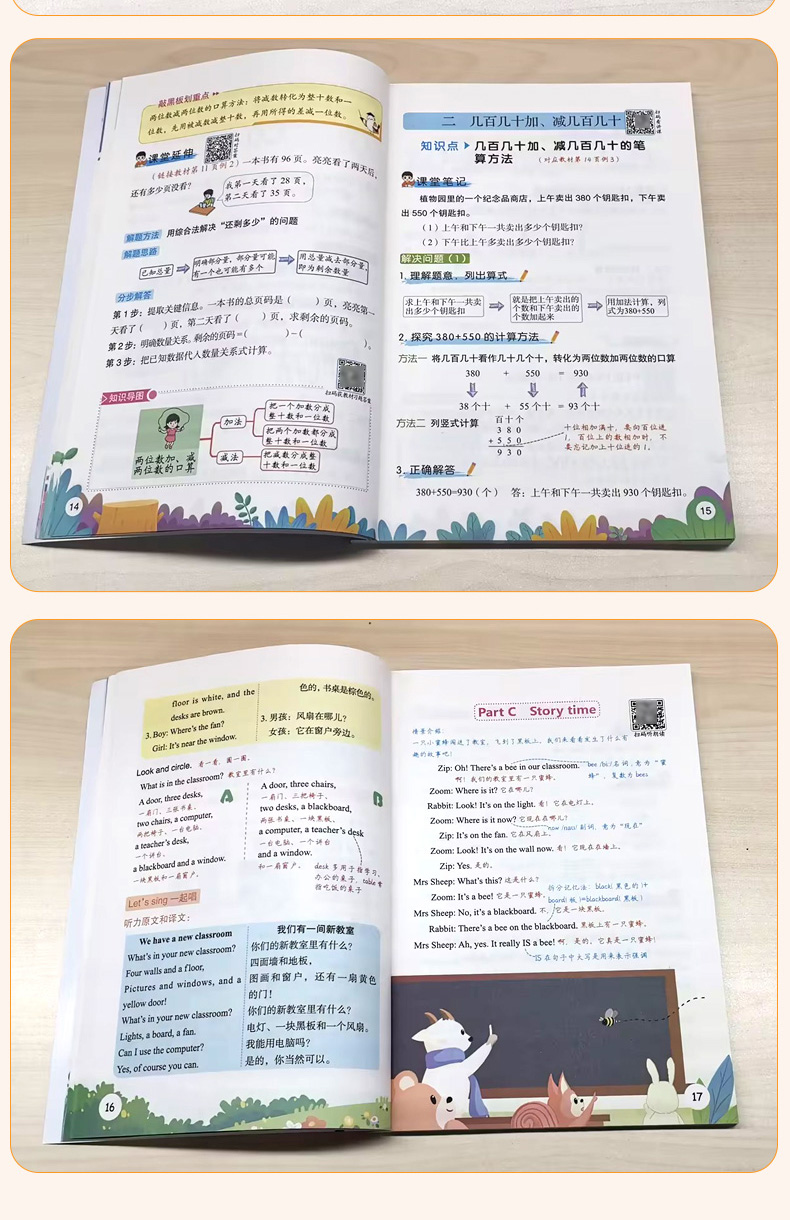 敲黑板划重点
两位数减两位数的口算方法：将减数转化为整十数和一
位数，先用被减数减整十数，再用所得的差减一位数。
扫码对答案
课堂延伸
（链接教材第11页例2）一本书有96页。亮亮看了两天后，
还有多少页没看？
我第一天看了28页，
第二天看了35页。
解题方法 用综合法解决“还剩多少”的问题
解题思路
已知总量
明确部分量，部分量可能
有一个也可能有多个
用总量减去部分量，
即为剩余数量
分步解答
第1步：提取关键信息。一本书的总页码是（ ）页，亮亮第一
天看了（ ）页，第二天看了（ ）页，求剩余的页码。
第2步：明确数量关系。剩余的页码=（ ）-（ ）。
第3步：把已知数据代人数量关系式计算。
扫码获教材习题答案
知识导图
两位数加、减
两位数的口算
加法
把一个加数分成
整十数和一位数
把两个加数都分成
整十数和一位数
减法
把减数分成整
十数和一位数
14
二 几百几十加、减几百几十
扫码看微课
知识点 几百几十加、减几百几十的笔
算方法 （对应教材第14页例3）
课堂笔记
植物园里的一个纪念品商店，上午卖出380个钥匙扣，下午卖
出550个钥匙扣。
（1）上午和下午一共卖出多少个钥匙扣？
（2）下午比上午多卖出多少个钥匙扣？
解决问题（1）
1. 理解题意，列出算式
求上午和下午一共卖
出多少个钥匙扣
就是把上午卖出的
个数和下午卖出的
个数加起来
用加法计算，列
式为380+550
2. 探究380+550的计算方法
方法一 将几百几十看作几十几个十，转化为两位数加两位数的口算
380 + 550 = 930
38个十 + 55个十 = 93个十
方法二 列竖式计算
百十个
3 8 0
+ 5 5 0
9 3 0
十位相加满十，要向百位进
1，百位上的数相加时，不
要忘记加上十位进的1。
3. 正确解答
380+550=930（个） 答：上午和下午一共卖出930个钥匙扣。
15
floor is white, and the
desks are brown.
3. Boy: Where's the fan?
Girl: It's near the window.
色的，书桌是棕色的。
3. 男孩：风扇在哪儿？
女孩：它在窗户旁边。
Look and circle. 看一看，圈一圈。
What is in the classroom? 教室里有什么？
A door, three desks,
一扇门、三张书桌、
two chairs, a computer,
两把椅子、一台电脑、
a teacher's desk,
一个讲台、
a blackboard and a window.
一块黑板和一扇窗户。
A
A door, three chairs,
一扇门、三把椅子、
two desks, a blackboard,
两张书桌、一块黑板、
a computer, a teacher's desk
一台电脑、一个讲台
and a window.
和一扇窗户。
B
desk 多用于指学习、
办公的桌子，table 常
指吃饭的桌子
Let's sing 一起唱
听力原文和译文：
We have a new classroom
What's in your new classroom?
Four walls and a floor,
Pictures and windows, and a
yellow door!
What's in your new classroom?
Lights, a board, a fan.
Can I use the computer?
Yes, of course you can.
我们有一间新教室
你们的新教室里有什么？
四面墙和地板，
图画和窗户，还有一扇黄色
的门！
你们的新教室里有什么？
电灯、一块黑板和一个风扇。
我能用电脑吗？
是的，你当然可以。
16
Part C Story time
扫码听朗读
情景介绍：
一只小蜜蜂闯进了教室，飞到了黑板上，我们来看看发生了什么有
趣的故事吧！
Zip: Oh! There's a bee in our classroom.
啊！我们的教室里有一只蜜蜂。
bee /biː/名词，意为“蜜
蜂”，复数为 bees
Zoom: Where is it? 它在哪儿？
Rabbit: Look! It's on the light. 看！它在电灯上。
Zoom: Where is it now? 它现在在哪儿？
Zip: It's on the fan. 它在风扇上。
now /naʊ/ 副词，意为“现在”
Zoom: Look! It's on the wall now. 看！它现在在墙上。
Zip: Yes. 是的。
Mrs Sheep: What's this? 这是什么？
Zoom: It's a bee! 它是一只蜜蜂。
拆分记忆法：black(黑色的)+
board(板)=blackboard(黑板)
Mrs Sheep: No, it's a blackboard. 不，它是一块黑板。
Rabbit: There's a bee on the blackboard. 黑板上有一只蜜蜂。
Mrs Sheep: Ah, yes. It really IS a bee! 啊，是的，它真是一只蜜蜂！
IS 在句子中大写是用来表示强调
17